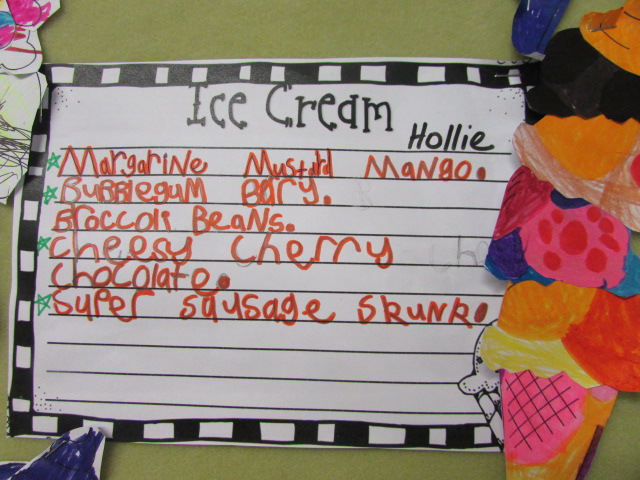 Ice Cream
Hollie
Margarine Mustard Mango.
Bubblegum Bary.
Broccoli Beans.
cheesy cherry
chocolate.
super sausage skunk.